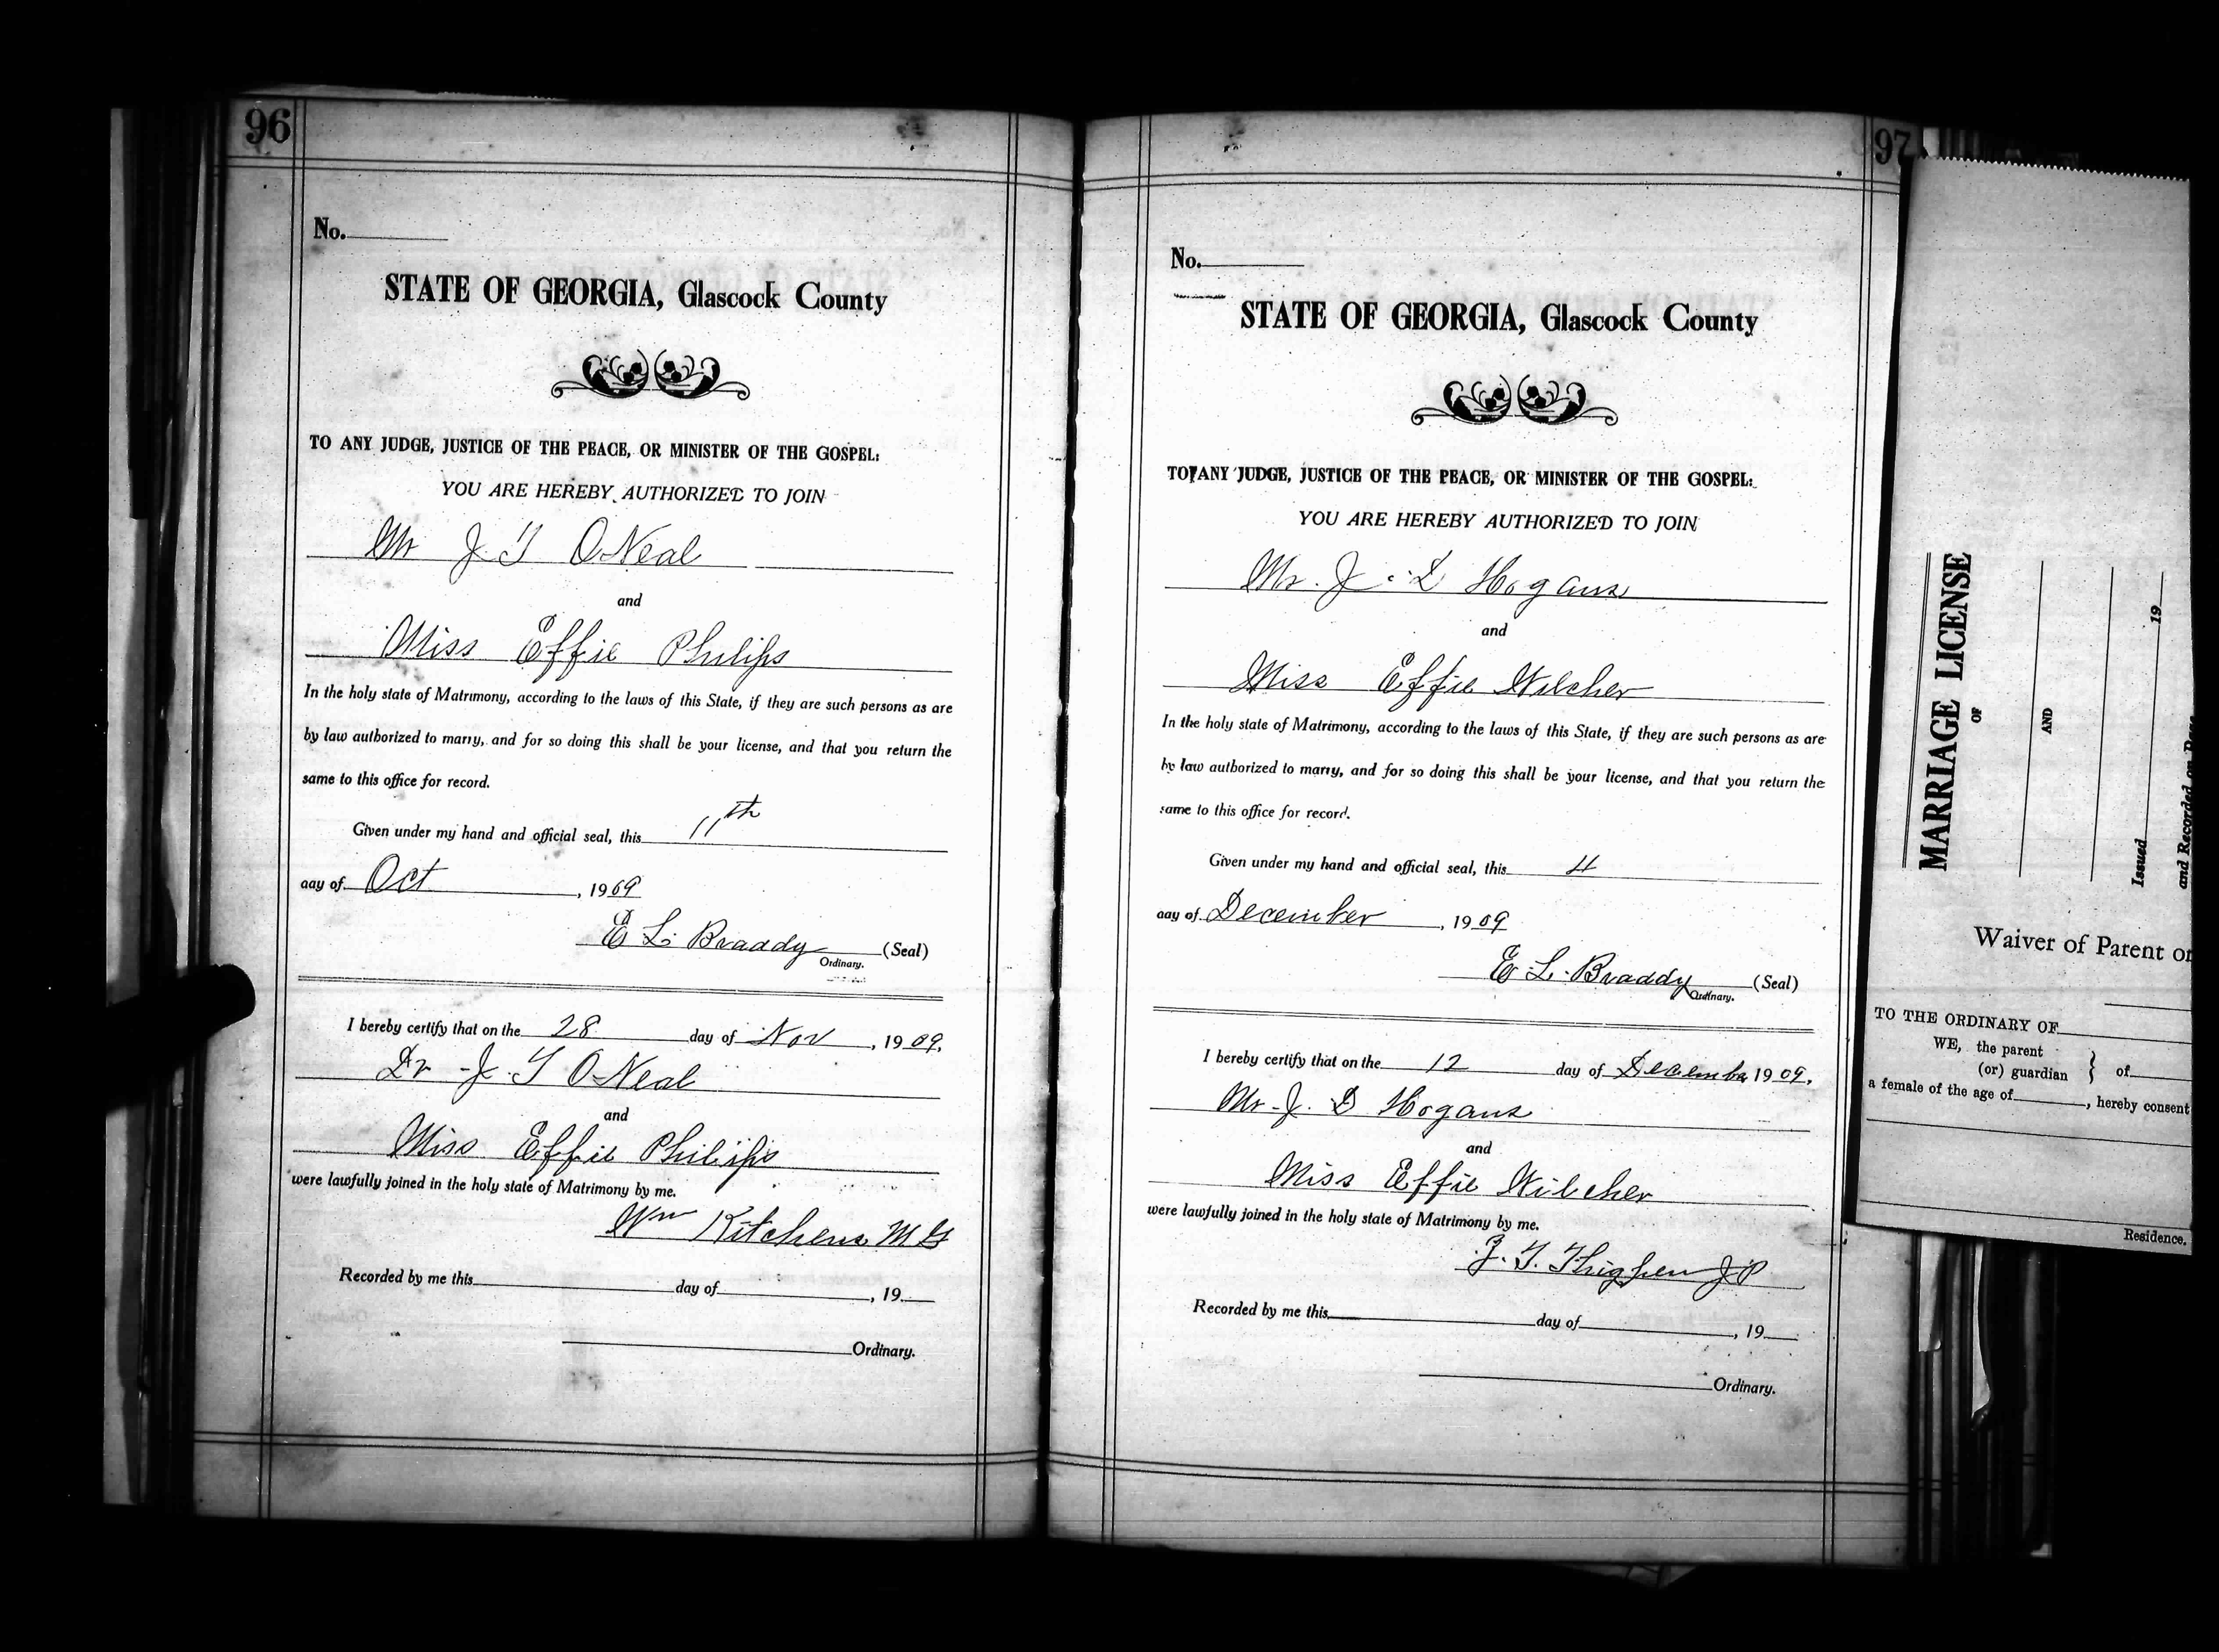 96
No.
STATE OF GEORGIA, Glascock County
TO ANY JUDGE, JUSTICE OF THE PEACE, OR MINISTER OF THE GOSPEL:
YOU ARE HEREBY AUTHORIZED TO JOIN
Mr J. T O.Neal
and
Miss Effie Philips
In the holy state of Matrimony, according to the laws of this State, if they are such persons as are
by law authorized to marry, and for so doing this shall be your license, and that you return the
same to this office for record.
Given under my hand and official seal, this 11th
day of Oct, 1909
E L. Braddy (Seal)
Ordinary.
I hereby certify that on the 28 day of Nov, 1909.
Dr J. T O.Neal
and
Miss Effie Philips
were lawfully joined in the holy state of Matrimony by me.
Wm Kitchens M G
Recorded by me this day of , 19
Ordinary.
97
No.
STATE OF GEORGIA, Glascock County
TO ANY JUDGE, JUSTICE OF THE PEACE, OR MINISTER OF THE GOSPEL:
YOU ARE HEREBY AUTHORIZED TO JOIN
Mr. J. D Hogans
and
Miss Effie Wilcher
In the holy state of Matrimony, according to the laws of this State, if they are such persons as are
by law authorized to marry, and for so doing this shall be your license, and that you return the
same to this office for record.
Given under my hand and official seal, this
day of December, 1909
E. L. Braddy (Seal)
Ordinary.
I hereby certify that on the 12 day of December 1909.
Mr. J. D Hogans
and
Miss Effie Wilcher
were lawfully joined in the holy state of Matrimony by me.
Thigpen J P
Recorded by me this day of , 19
Ordinary.
MARRIAGE LICENSE
OF
AND
Issued 19
and Recorded on Page
Waiver of Parent or
TO THE ORDINARY OF
WE, the parent
(or) guardian } of
a female of the age of , hereby consent
Residence.